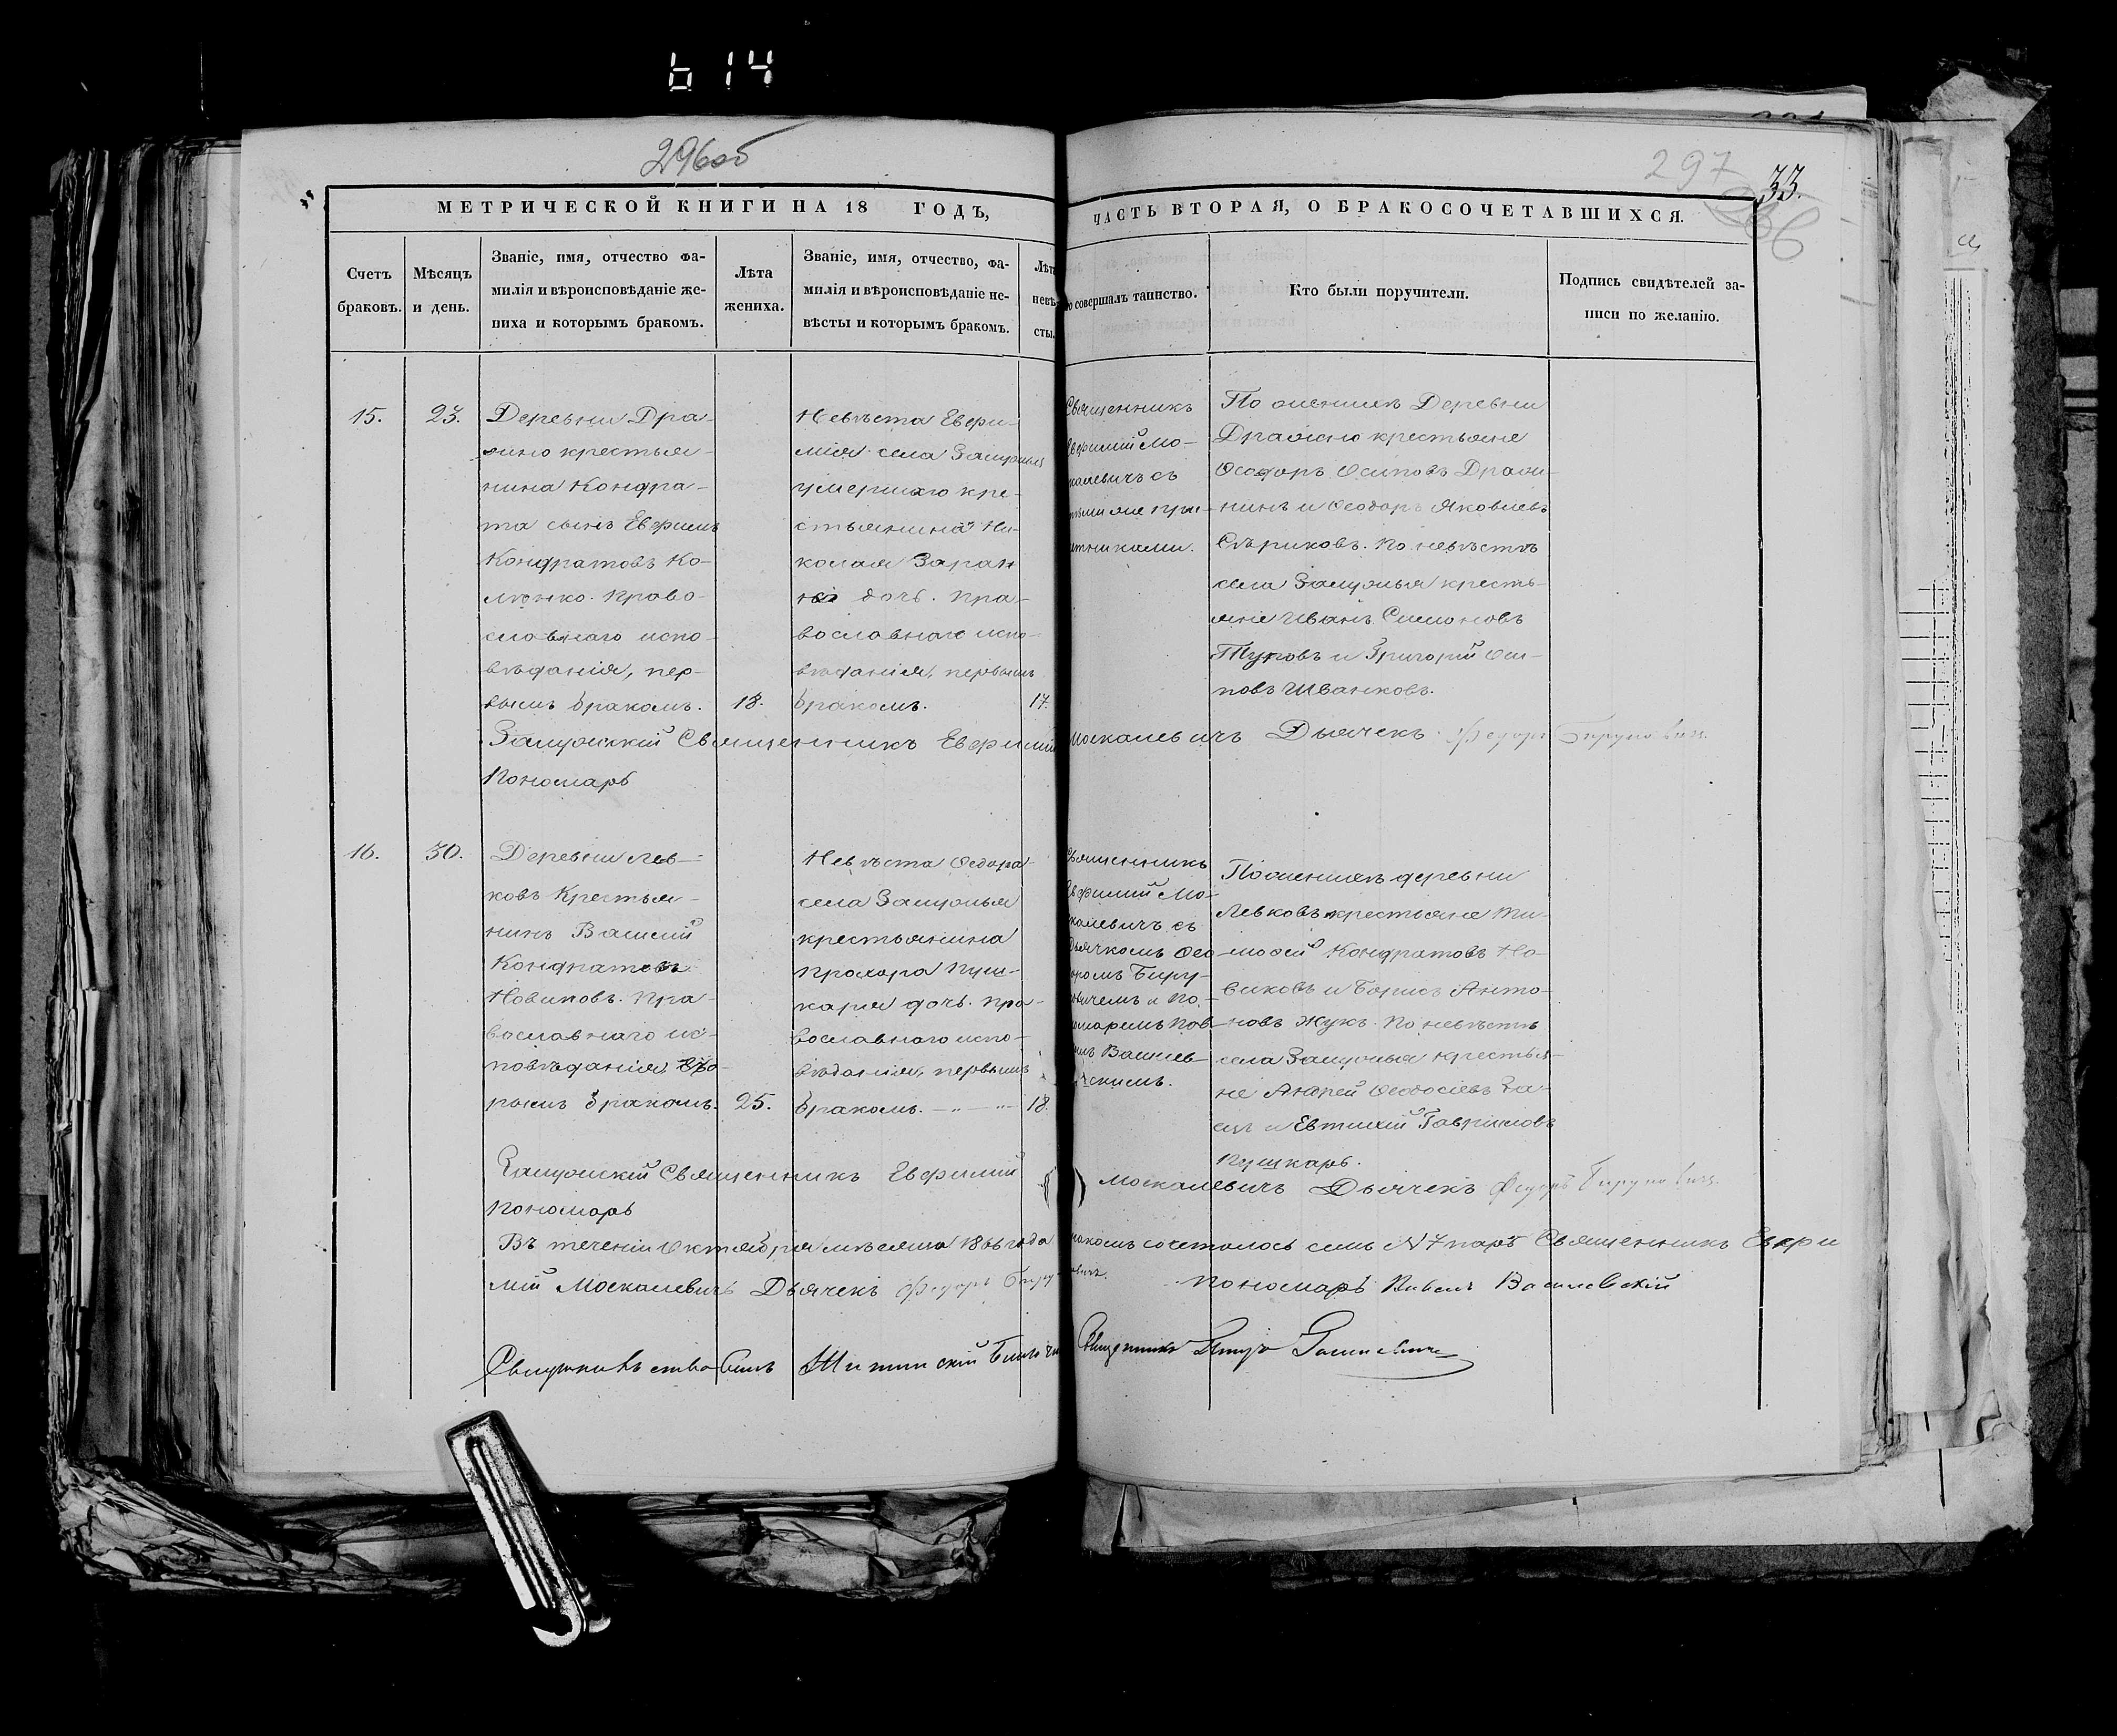 614
296об
297
33.
МЕТРИЧЕСКОЙ КНИГИ НА 18 ГОДЪ,
ЧАСТЬ ВТОРАЯ, О БРАКОСОЧЕТАВШИХСЯ.
Счетъ
браковъ.
Мѣсяцъ
и день.
Званіе, имя, отчество фа-
милія и вѣроисповѣданіе же-
ниха и которымъ бракомъ.
Лѣта
жениха.
Званіе, имя, отчество, фа-
милія и вѣроисповѣданіе не-
вѣсты и которымъ бракомъ.
Лѣта
невѣ-
сты.
совершалъ таинство.
Кто были поручители.
Подпись свидѣтелей за-
писи по желанію.
15.
23.
Деревни Дра-
жно крестья-
нина Кондра-
та сынъ Евфимъ
Кондратовъ Ко-
Право-
славнаго испо-
вѣданія, пер-
вымъ бракомъ.
18.
Невѣста Евфи-
мія села
умершаго кре-
стьянина Ни-
колая Заран
дочь. Пра-
вославнаго испо-
вѣданія, первымъ
бракомъ.
17.
Священникъ
Евфимій Мо-
скалевичъ съ
тѣми же при-
четниками.
По женихѣ Деревни
Дражно крестьяне
Ѳеодоръ Осиповъ
и Ѳеодоръ Яковлевъ
Сѣриковъ. По невѣстѣ
села крестья-
яне Иванъ Симоновъ
и Григорій Оси-
повъ Иванковъ.
Священникъ Евфимій Москалевичъ Дьячекъ Федоръ
Пономарь
16.
30.
Деревни Лев-
ковъ Крестья-
нинъ Василій
Кондратовъ
Новиковъ. Пра-
вославнаго ис-
повѣданія, вто-
рымъ бракомъ.
25.
Невѣста Ѳеодора
села
крестьянина
Прохора Пуш-
каря дочь. Пра-
вославнаго испо-
вѣданія, первымъ
бракомъ. —„— —„—
18.
Священникъ
Евфимій Мо-
скалевичъ съ
Дьячкомъ Ѳео-
доромъ Биру-
и По-
номаремъ Пав-
ломъ Васılев-
скимъ.
По женихѣ деревни
Левковъ крестьяне Ти-
моѳей Кондратовъ Но-
виковъ и Борисъ Анто-
новъ Жукъ. По невѣстѣ
села крестья-
не Андрей Ѳеодосіевъ За-
яцъ и Евтихій Гавриловъ
Пушкарь.
Священникъ Евфимій Москалевичъ Дьячекъ Федоръ
Пономарь
Въ теченіи Октября мѣсяца 1866 года бракомъ сочеталось семь № 7 паръ Священникъ Евфи
мій Москалевичъ Дьячекъ Федоръ
Пономарь Павелъ Василевскій